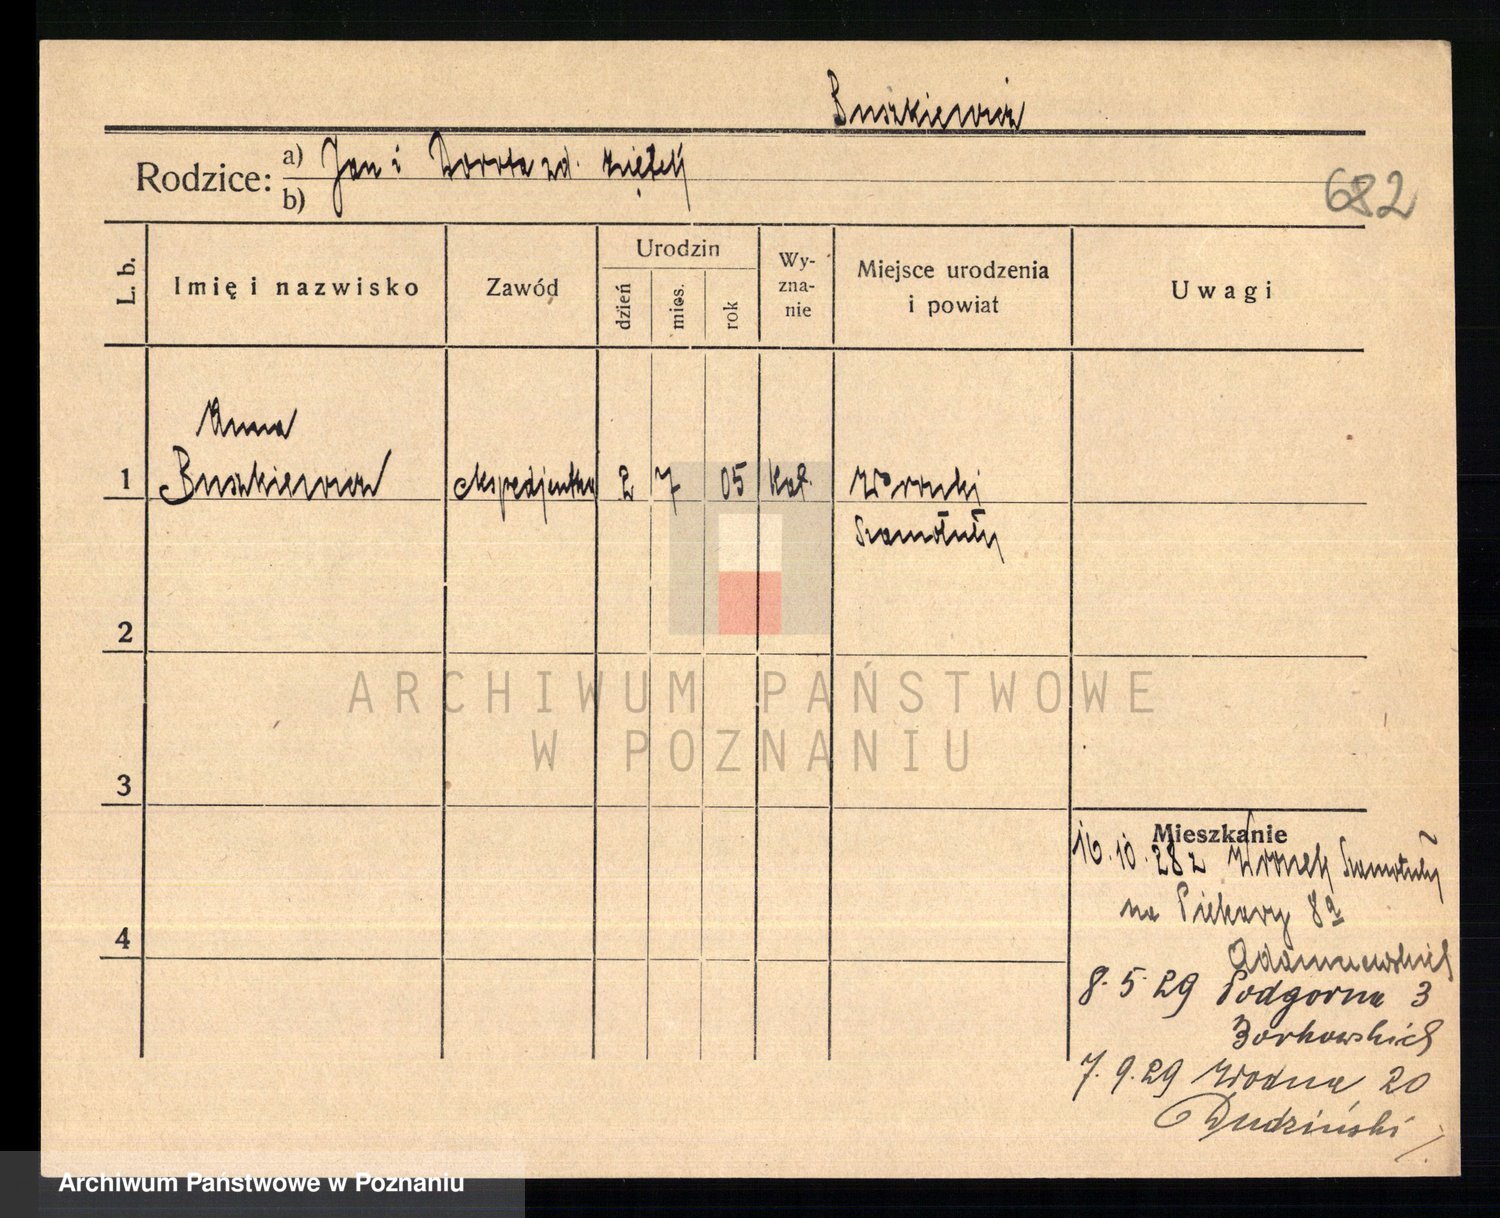 Buszkiewicz
Rodzice: a) Jan i Dorota zd.
b)
682
L. b.
Imię i nazwisko
Zawód
Urodzin
dzień
mies.
rok
Wy-
zna-
nie
Miejsce urodzenia
i powiat
Uwagi
Anna
1 Buszkiewicz ekspedjentka 2 7 05 Kat. Wronki
Szamotuły
2
ARCHIWUM PAŃSTWOWE
W POZNANIU
3
Mieszkanie
16.10.28 z Wronek Szamotuły
na Piekary 8a
4
8.5.29 Podgorna 3
Borkowskich
7.9.29 Wodna 20
Dudziński
Archiwum Państwowe w Poznaniu